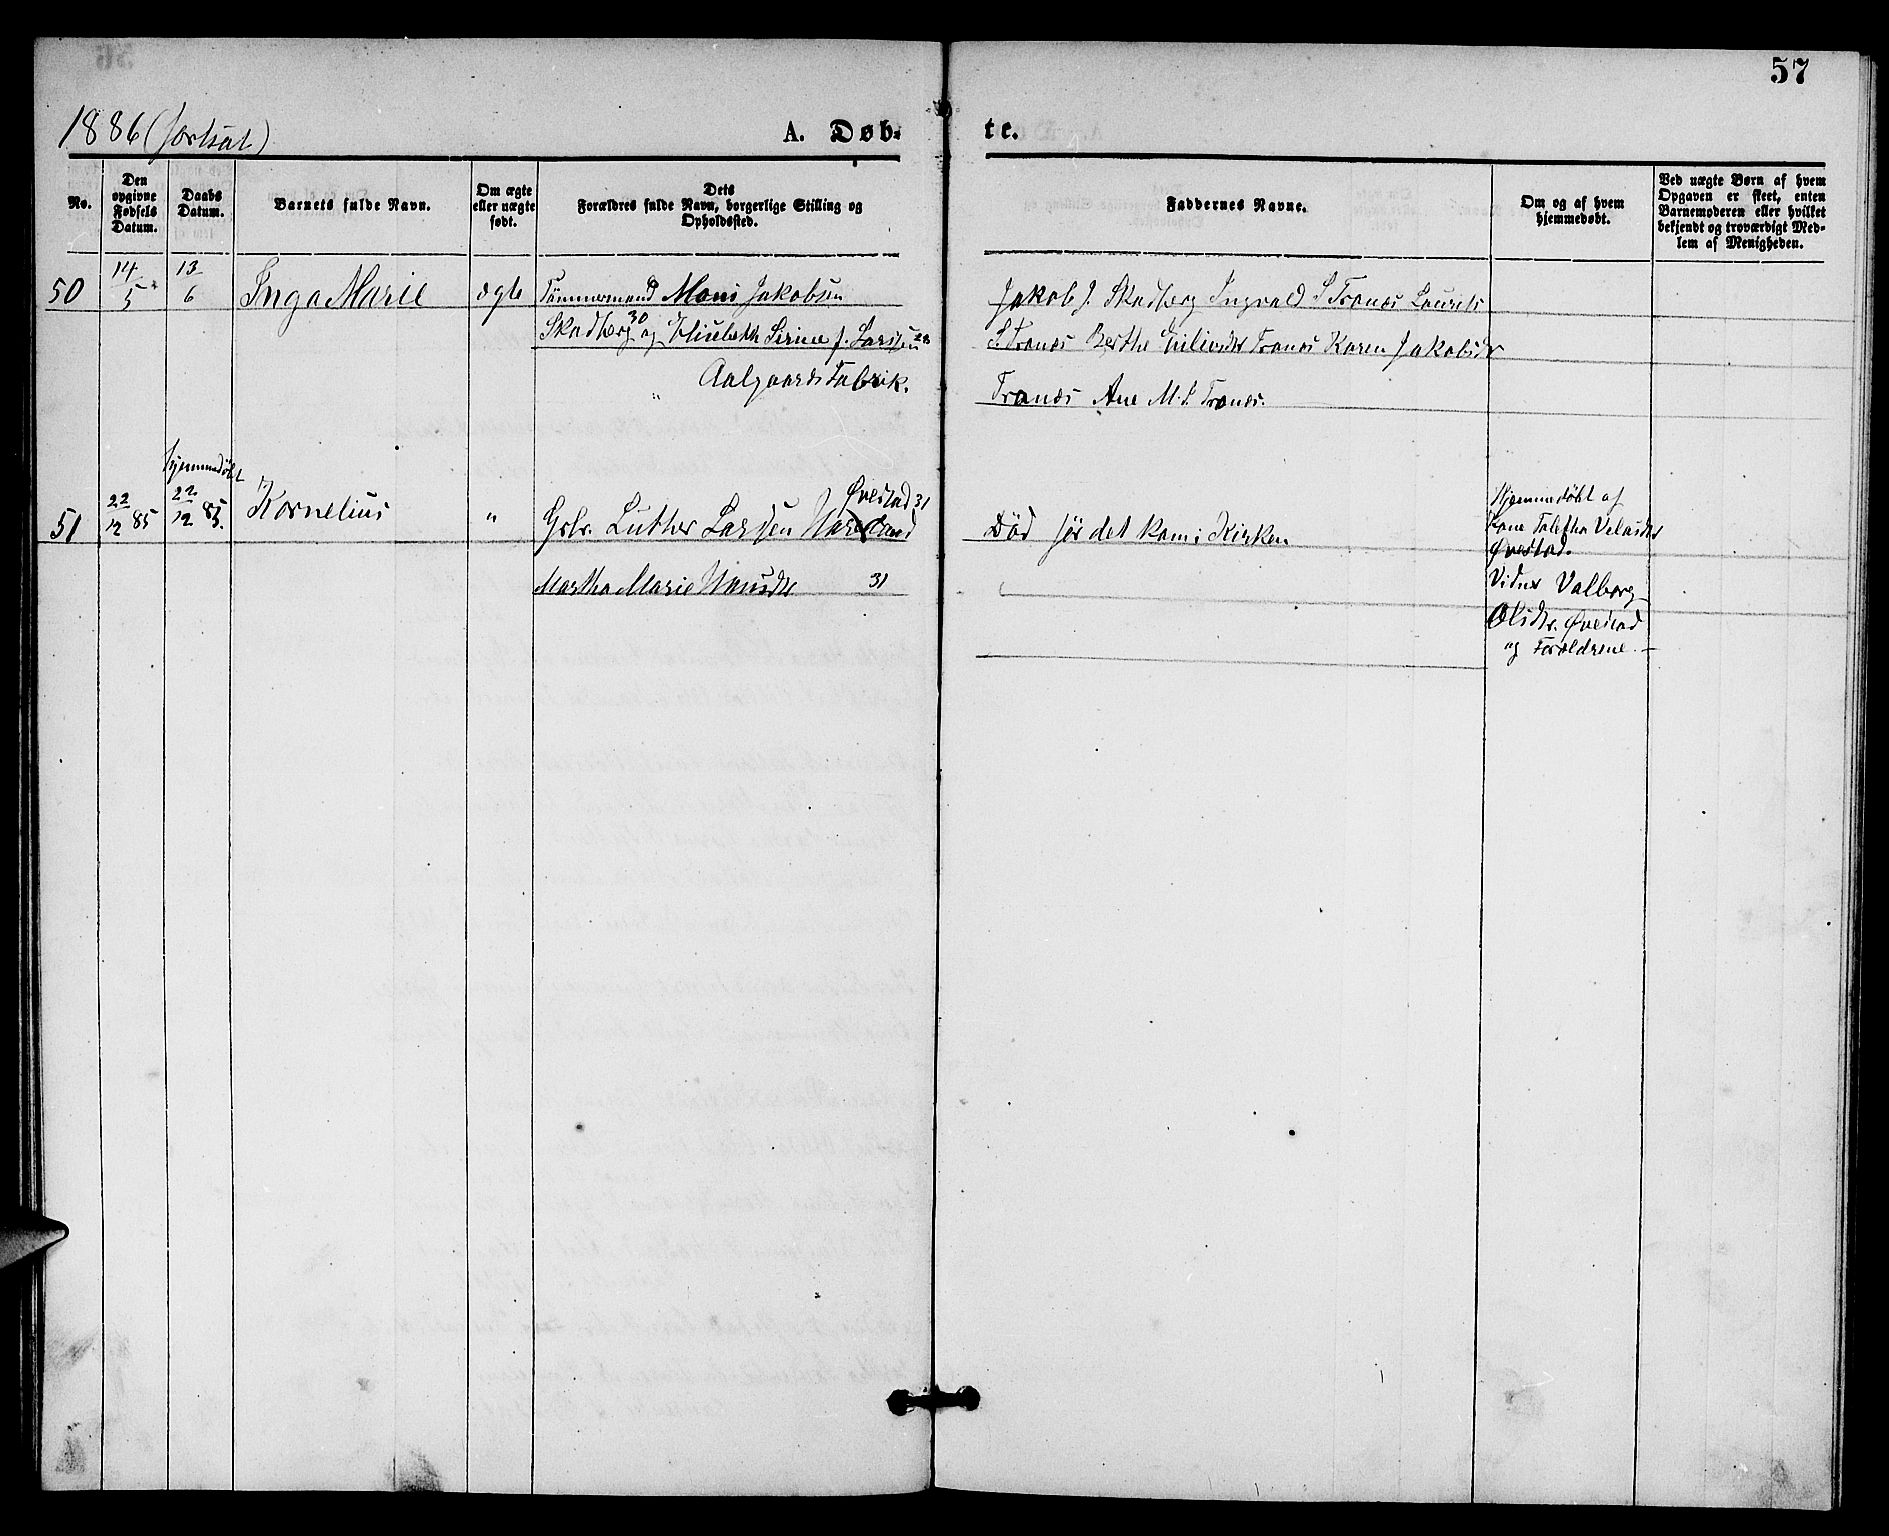 57
1886 (fortsat)
A. Døb-
te.
No.
Den
opgivne
Fødsels
Datum.
Daabs
Datum.
Barnets fulde Navn.
Om ægte
eller uægte
født.
Dets
Forældres fulde Navn, borgerlige Stilling og
Opholdssted.
Faddernes Navne.
Om og af hvem
hjemmedøbt.
Ved uægte Børn af hvem
Opgaven er skeet, enten
Barnemoderen eller hvilket
bekjendt og troværdigt Med-
lem af Menigheden.
50
14/5
13/6
Inga Marie
ægte
Tømmermand Mons Jakobsen
Skadberg 30 og Elisabeth Serine f. Larssen 28
Aalgaards Fabrik.
Jakob J. Skadberg Ingvald S Tronæs Laurits
S. Tronæs Berthe Emilie Tronæs Karen Jakobsdr
Tronæs Ane M. S. Tronæs.
51
22/12 85
Hjemmedøbt
22/12 85.
Kornelius
"
Øvestad 31
Grbr. Luther Larssen
Martha Marie 31
Død før det kom i Kirken
Hjemmedøbt af
Øvestad.
Vidner Valborg
Olsdtr. Øvestad
og Forældrene. —